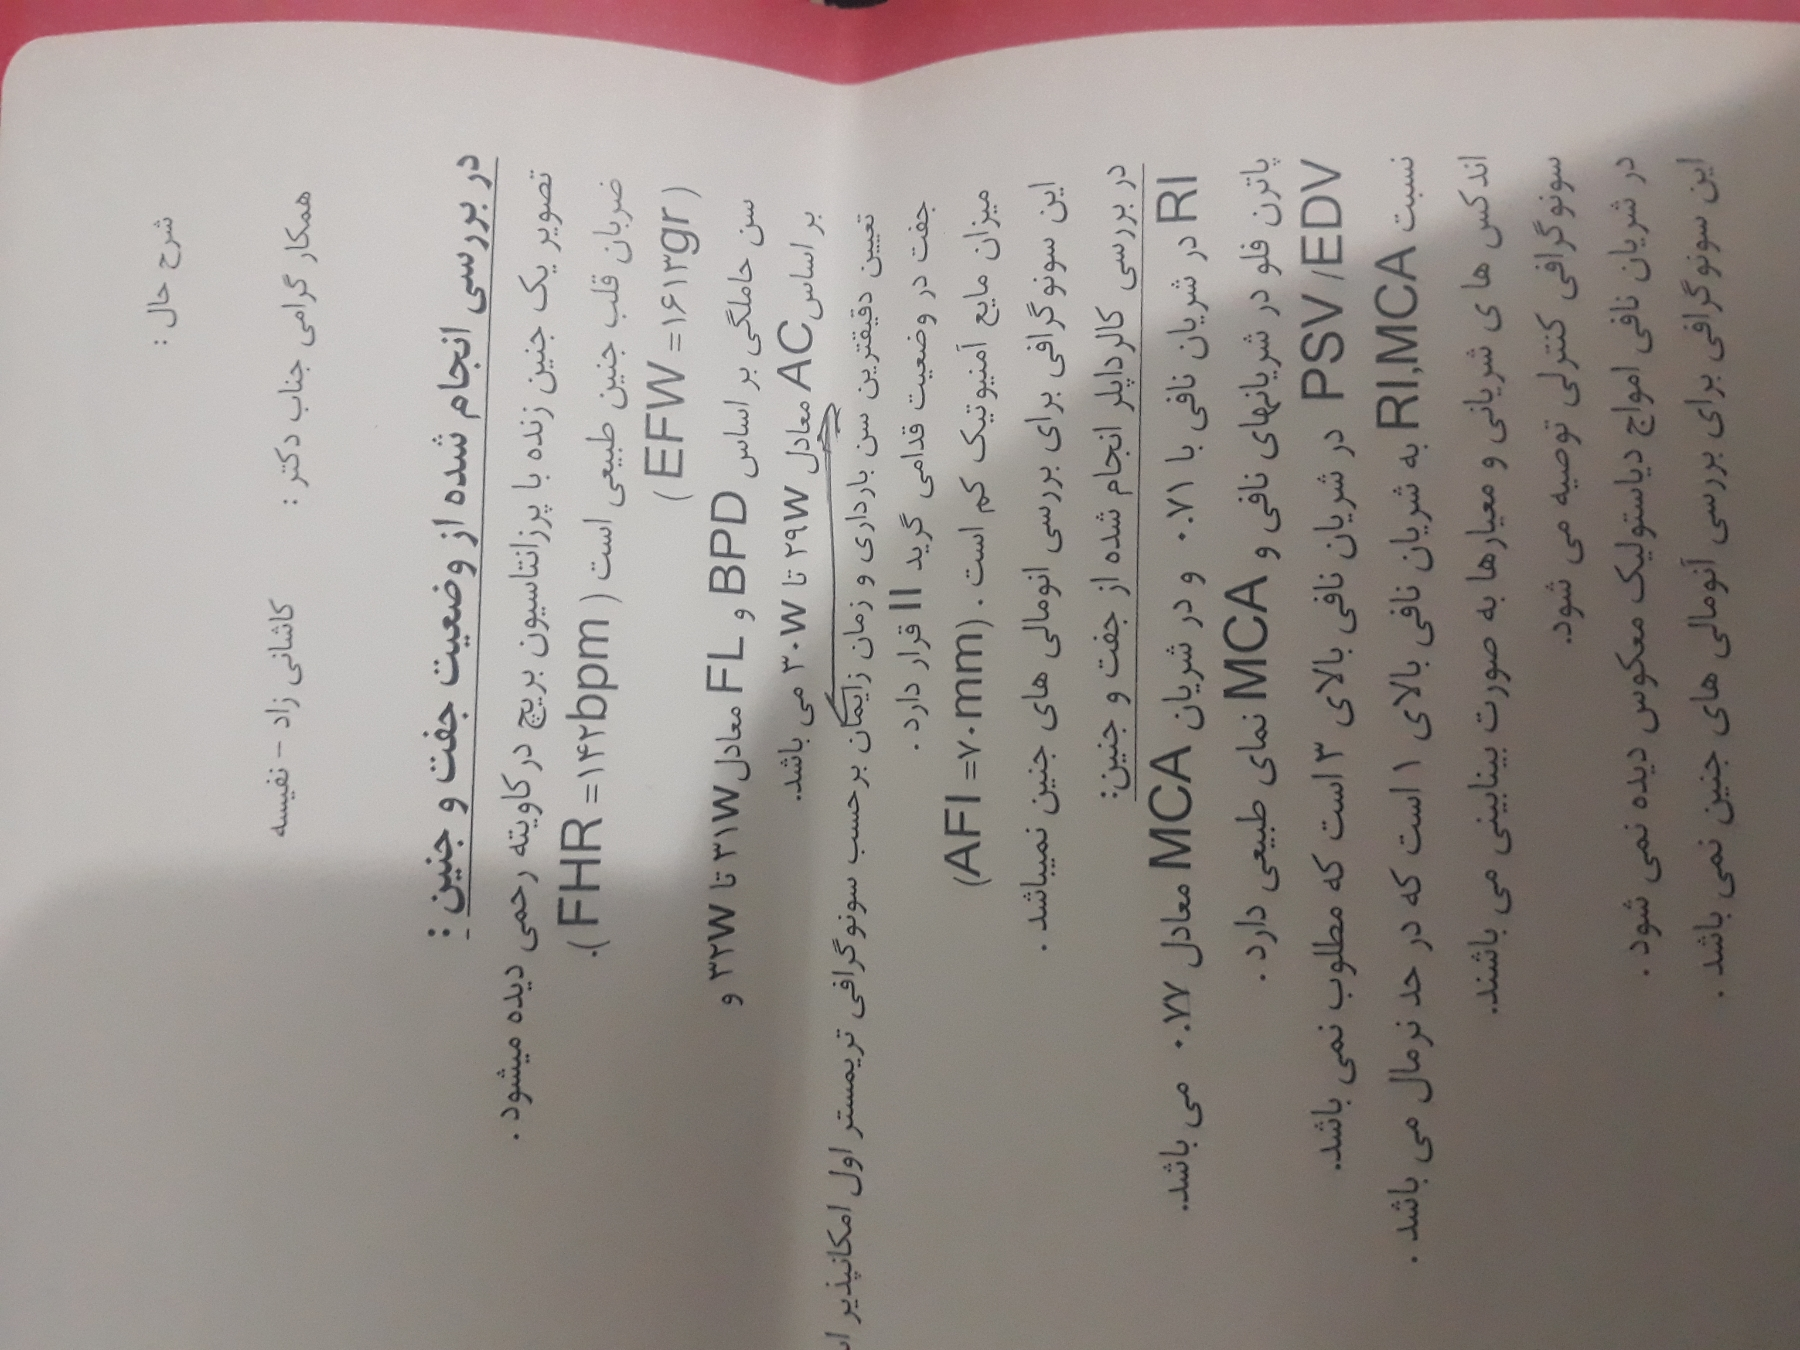 شرح حال :
همکار گرامی جناب دکتر : کاشانی زاد - نفیسه
در بررسی انجام شده از وضعیت جفت و جنین :
تصویر یک جنین زنده با پرزانتاسیون بریچ در کاویته رحمی دیده میشود .
ضربان قلب جنین طبیعی است ( FHR =۱۴۲bpm).
( EFW =۱۶۱۳gr )
سن حاملگی بر اساس BPD و FL معادل ۳۱W تا ۳۲W و
بر اساس AC معادل ۲۹W تا ۳۰W می باشد.
تعیین دقیقترین سن بارداری و زمان زایمان برحسب سونوگرافی تریمستر اول امکانپذیر
جفت در وضعیت قدامی گرید II قرار دارد .
میزان مایع آمنیوتیک کم است . (AFI =۷۰mm)
این سونوگرافی برای بررسی انومالی های جنین نمیباشد .
در بررسی کالرداپلر انجام شده از جفت و جنین:
RI در شریان نافی با ۰.۷۱ و در شریان MCA معادل ۰.۷۷ می باشد.
پاترن فلو در شریانهای نافی و MCA نمای طبیعی دارد .
PSV /EDV در شریان نافی بالای ۳ است که مطلوب نمی باشد.
نسبت RI,MCA به شریان نافی بالای ۱ است که در حد نرمال می باشد .
اندکس های شریانی و معیارها به صورت بینابینی می باشند.
سونوگرافی کنترلی توصیه می شود.
در شریان نافی امواج دیاستولیک معکوس دیده نمی شود .
این سونوگرافی برای بررسی آنومالی های جنین نمی باشد .